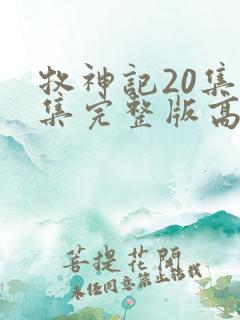 牧神記20集
集完整版高
菩提花開
未经同意禁止转载